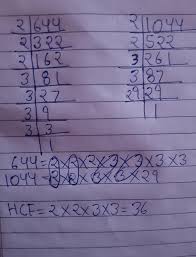 2|644
2|322
2|162
3|81
3|27
3|9
3|3
1
2|1044
2|522
3|261
3|87
29|29
1
644=2×2×2×3×3×3×3
1044=2×2×3×3×29
HCF=2×2×3×3=36